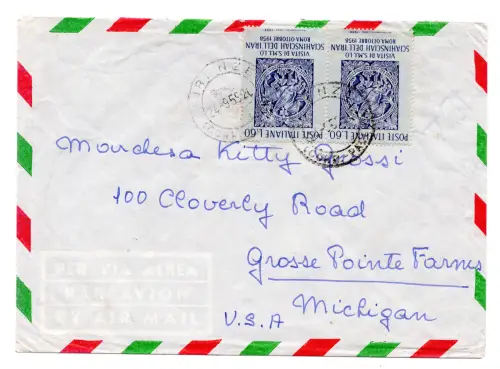 VISITA DI S.M.I. LO
SCIAINSCIAH DELL'IRAN
ROMA OTTOBRE 1958
POSTE ITALIANE L.60
VISITA DI S.M.I. LO
SCIAINSCIAH DELL'IRAN
ROMA OTTOBRE 1958
POSTE ITALIANE L.60
Marchesa Kitty Grossi
100 Cloverly Road
Grosse Pointe Farms
Michigan
U.S.A
PER VIA AEREA
PAR AVION
BY AIR MAIL